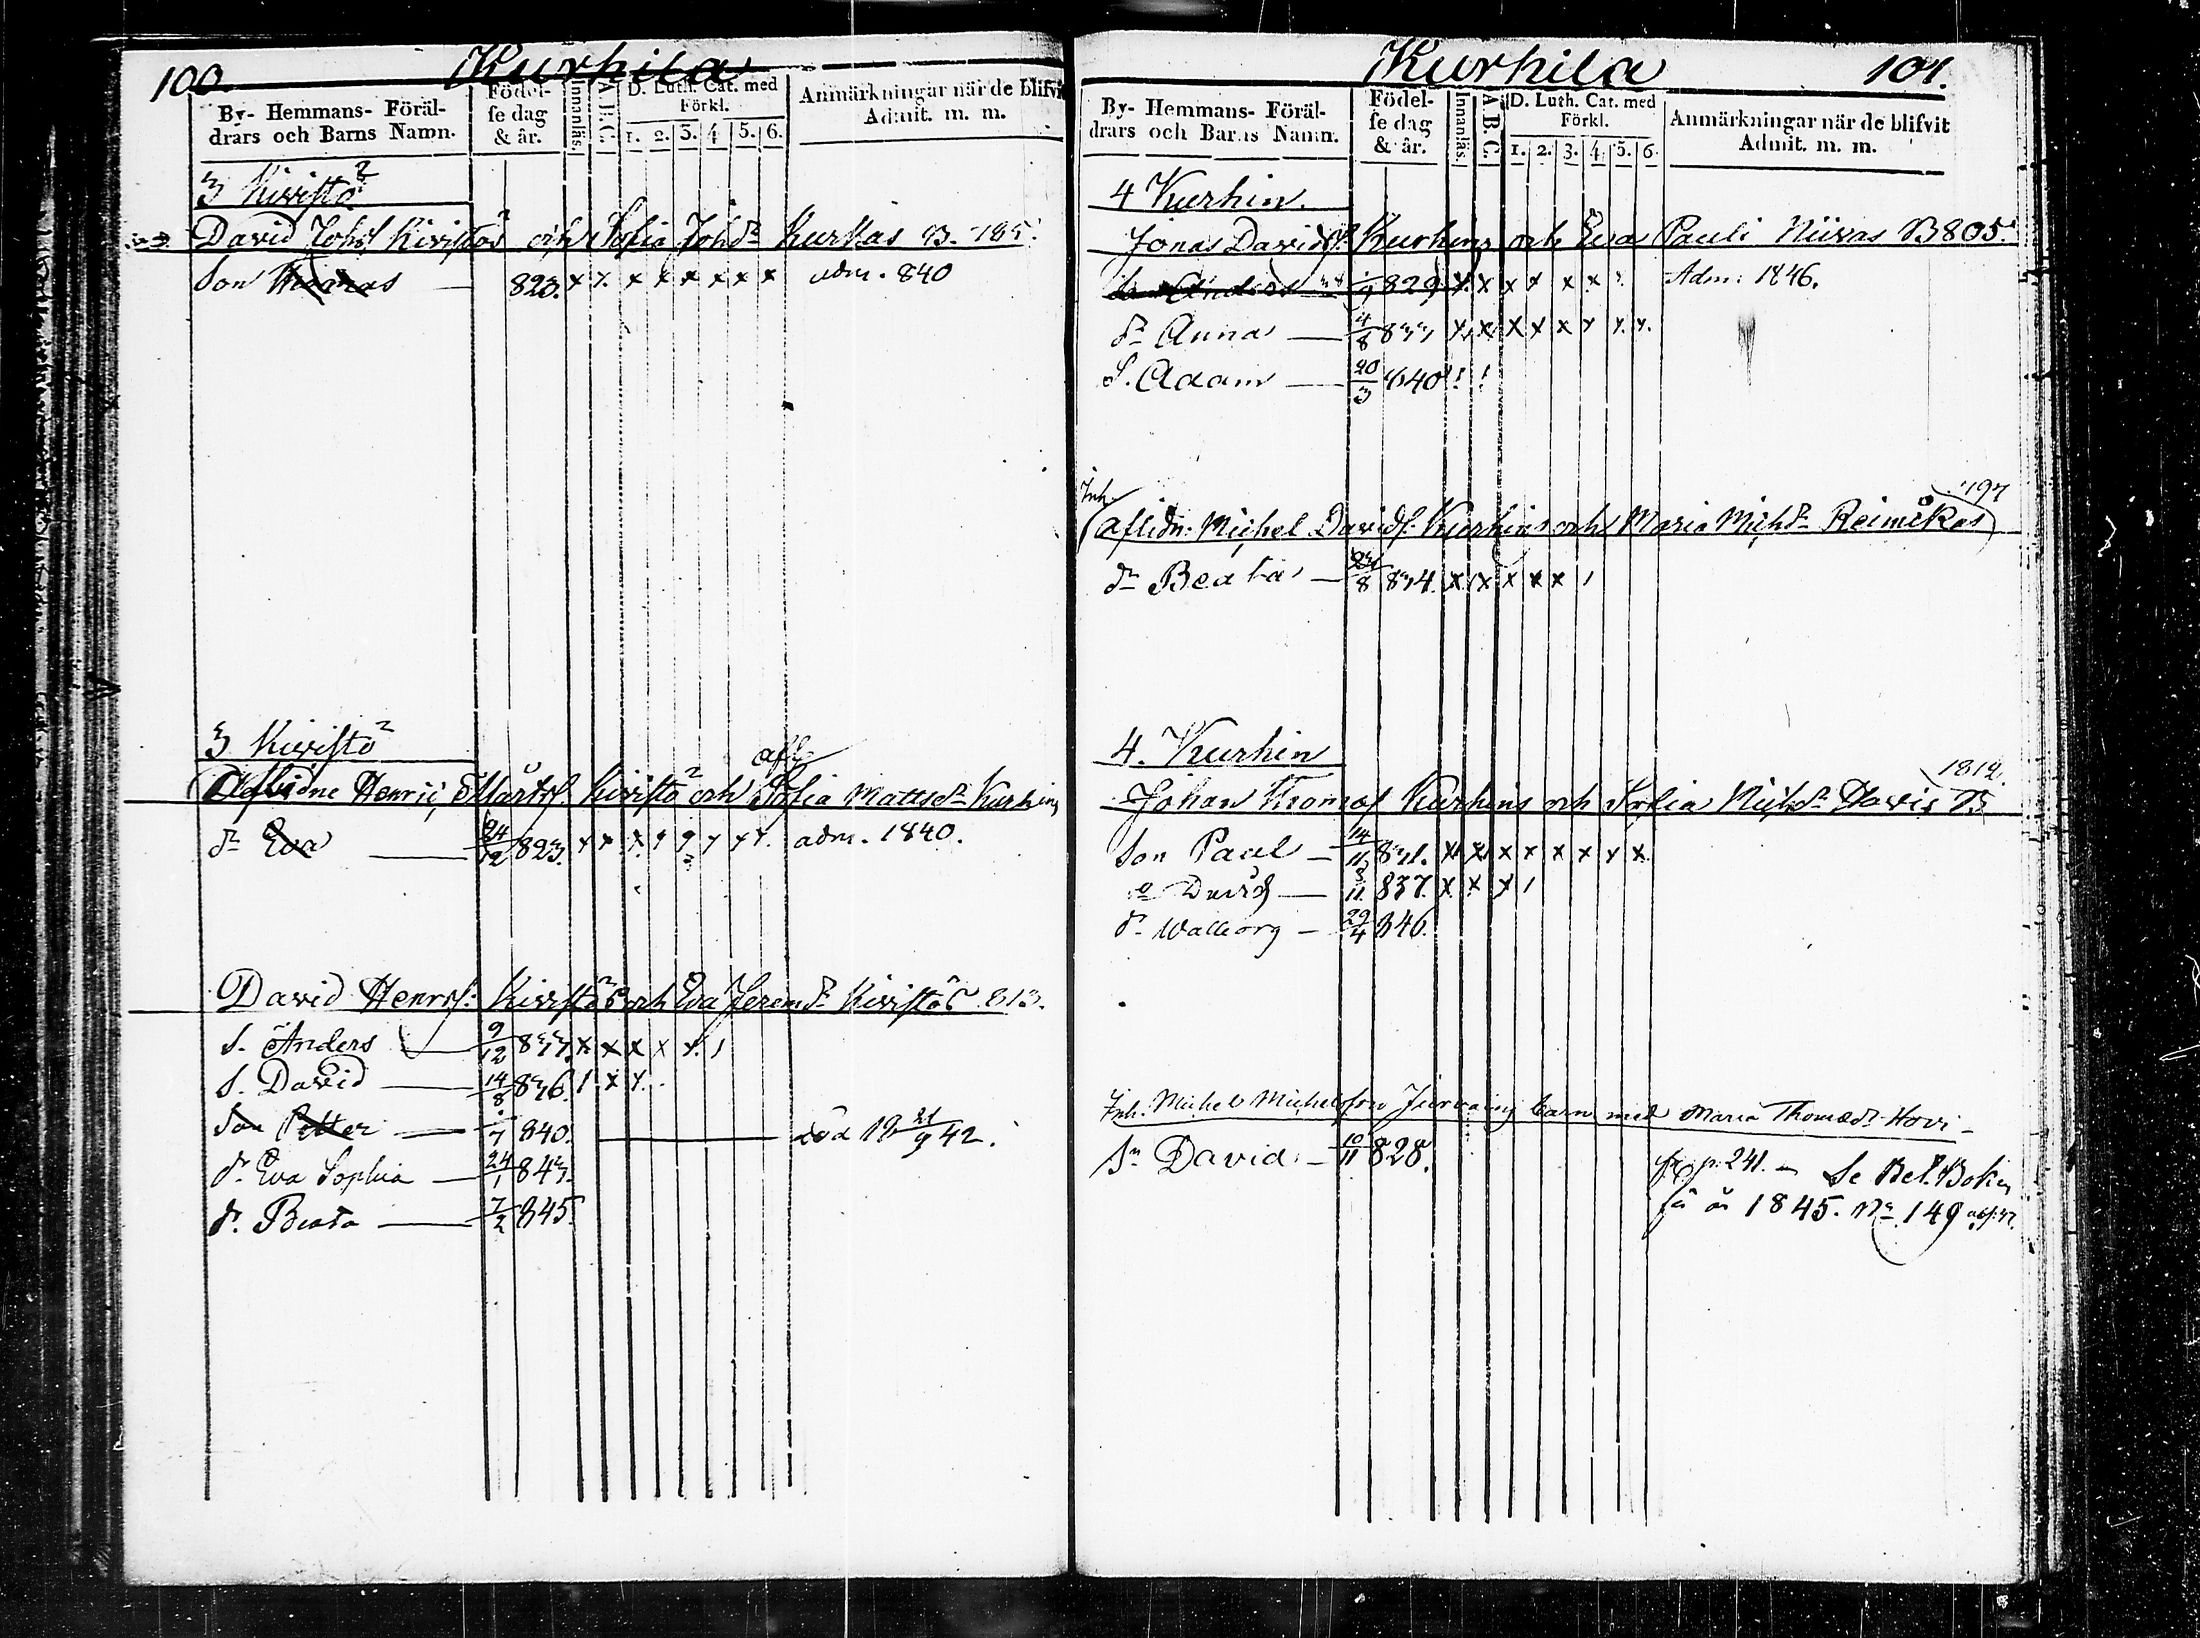 100. Kurhila
By- Hemmans- Föräl-
drars och Barns Namn.
Födel-
se dag
& år.
Innanläs.
A. B. C.
D. Luth. Cat. med
Förkl.
1. 2. 3. 4 5. 6.
Anmärkningar när de blifvit
Admit. m. m.
3 Kivistö
David Johsf Kivistös och Sofia Johdr Kurkas B.
Son Thomas — 823. x x x x x x x x adm. 840
3 Kivistö
afl.
Aflidne Henric Mårtsf. Kivistö och Sofia Mattsdr Kurhins
dr Eva — 24/12 823. adm. 1840.
David Henrsf: Kivistös och Eva Jeremdr Kivistö 813.
S. Anders — 9/12 833. x x x x x /
S. David — 14/8 836. / x x
Son Petter — 7 840. — död 19 21/9 42.
dr Eva Sophia — 24/1 843.
dr. Beata — 7/2 845.
Kurhila 101.
By- Hemmans- Föräl-
drars och Barns Namn.
Födel-
se dag
& år.
Innanläs.
A. B. C.
D. Luth. Cat. med
Förkl.
1. 2. 3. 4. 5. 6.
Anmärkningar när de blifvit
Admit. m. m.
4 Kurhin.
Jonas Davidsf. Kurhins och Eva Pauli Niivas B 805.
Anders 829 x x x x x x Adm: 1846.
dr Anna — 4/8 833 x x x x x x x x
S. Adam — 20/3 840 ! !
Inh. 197
(aflidn: Michel Davidsf. Kurhins och Maria Michdr Reimikas)
dr Beata — 8 834. x x x x x /
4. Kurhin
1812.
Johan Thomasf Kurhins och Sofia Michdr Havis B
Son Paul — 14/11 831. x x x x x x x x
David — 3/11 837. x x x /
dr Walborg — 29/4 846.
Inh: Michel Michelsson barn med Maria Thomædr Hovi —
Sn David — 10/11 828.
p. 241. — Se Bel. Boken
för år 1845. No 149